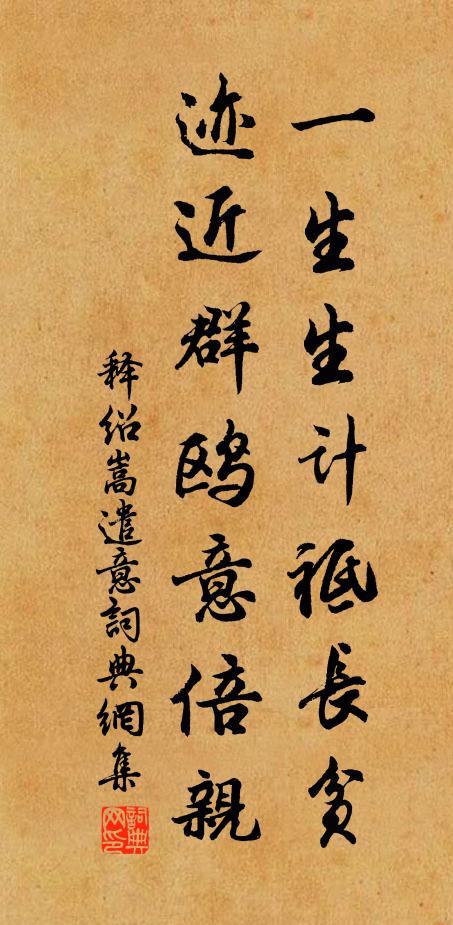 一生生计祗长贫
迹近群鸥意倍親
释绍嵩遣意詞典網集
詞典网印